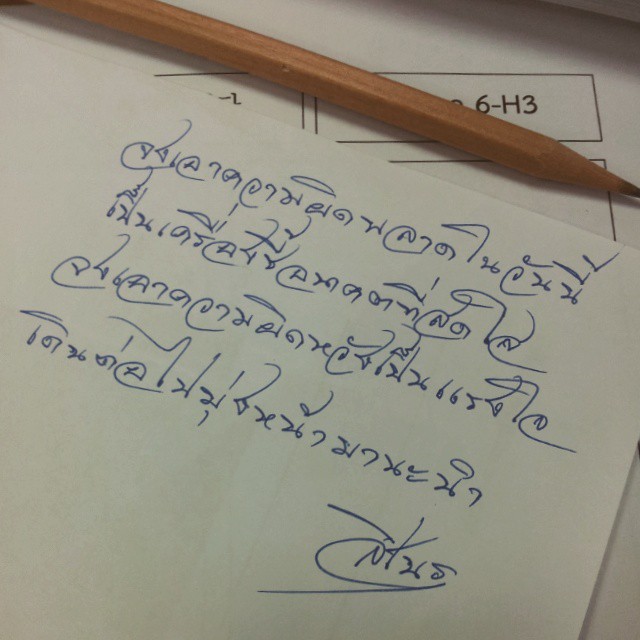 6-H3
จงเอาความผิดพลาดในวันนี้
เป็นเครื่องชี้อนาคตที่สดใส
จงเอาความผิดหวังเป็นแรงใจ
เดินต่อไปมุ่งหน้ามานะนำ